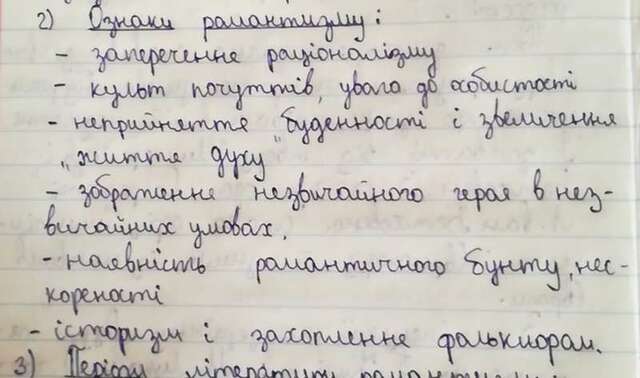 2) Ознаки романтизму:
- заперечення раціоналізму
- культ почуттів, увага до особистості
- неприйняття буденності і звеличення
"життя духу"
- зображення незвичайного героя в нез-
вичайних умовах.
- наявність романтичного бунту, нес-
кореності
- історизм і захоплення фольклором.
3) Періоди літератури романтизму: